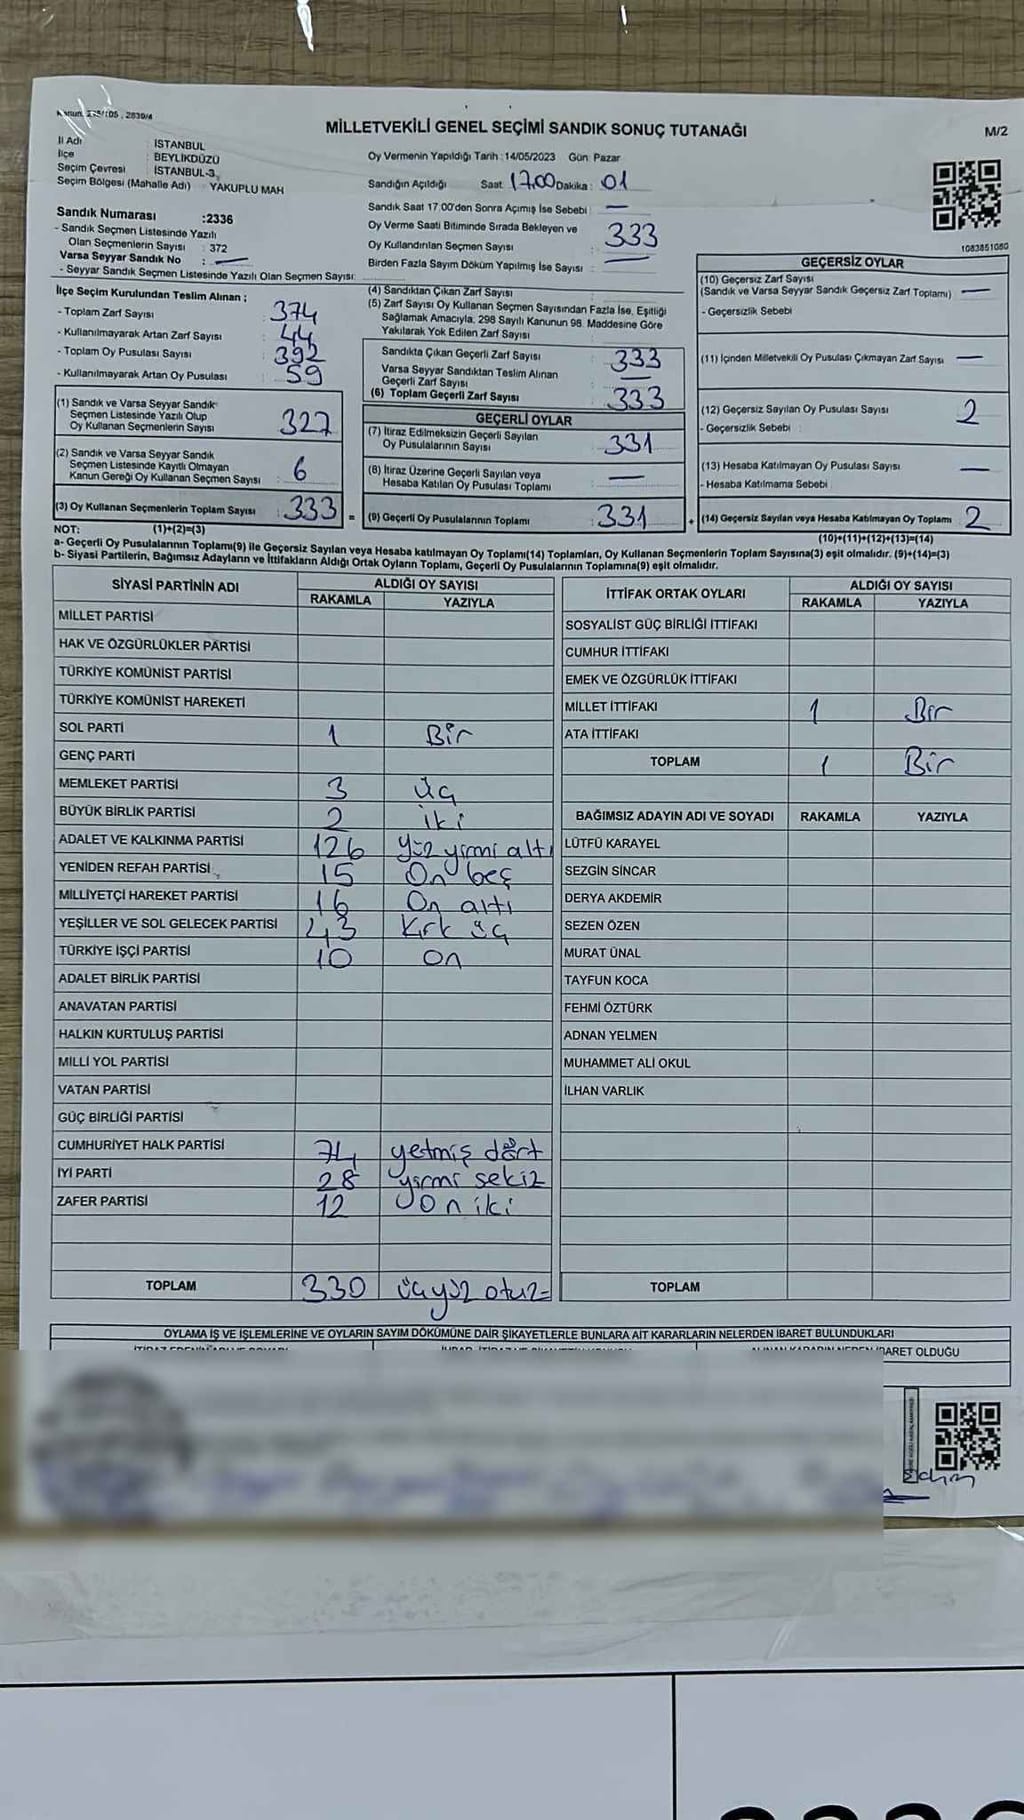 Kanun: 298/105 , 2839/4
MİLLETVEKİLİ GENEL SEÇİMİ SANDIK SONUÇ TUTANAĞI
M/2
İl Adı : İSTANBUL
İlçe : BEYLİKDÜZÜ
Seçim Çevresi : İSTANBUL-3
Seçim Bölgesi (Mahalle Adı) : YAKUPLU MAH
Oy Vermenin Yapıldığı Tarih :14/05/2023 Gün: Pazar
Sandığın Açıldığı Saat: 17.00 Dakika: 01
Sandık Saat 17.00'den Sonra Açımış İse Sebebi : —
Oy Verme Saati Bitiminde Sırada Bekleyen ve
Oy Kullandırılan Seçmen Sayısı : 333
Birden Fazla Sayım Döküm Yapılmış İse Sayısı : —
1083851080
Sandık Numarası :2336
- Sandık Seçmen Listesinde Yazılı
Olan Seçmenlerin Sayısı : 372
Varsa Seyyar Sandık No : —
- Seyyar Sandık Seçmen Listesinde Yazılı Olan Seçmen Sayısı:
İlçe Seçim Kurulundan Teslim Alınan ;
- Toplam Zarf Sayısı : 374
- Kullanılmayarak Artan Zarf Sayısı : 44
- Toplam Oy Pusulası Sayısı : 392
- Kullanılmayarak Artan Oy Pusulası : 59
(1) Sandık ve Varsa Seyyar Sandık
Seçmen Listesinde Yazılı Olup
Oy Kullanan Seçmenlerin Sayısı : 327
(2) Sandık ve Varsa Seyyar Sandık
Seçmen Listesinde Kayıtlı Olmayan
Kanun Gereği Oy Kullanan Seçmen Sayısı : 6
(3) Oy Kullanan Seçmenlerin Toplam Sayısı : 333 =
(1)+(2)=(3)
(4) Sandıktan Çıkan Zarf Sayısı
(5) Zarf Sayısı Oy Kullanan Seçmen Sayısından Fazla İse, Eşitliği
Sağlamak Amacıyla, 298 Sayılı Kanunun 98. Maddesine Göre
Yakılarak Yok Edilen Zarf Sayısı
Sandıkta Çıkan Geçerli Zarf Sayısı : 333
Varsa Seyyar Sandıktan Teslim Alınan
Geçerli Zarf Sayısı : —
(6) Toplam Geçerli Zarf Sayısı : 333
GEÇERLİ OYLAR
(7) İtiraz Edilmeksizin Geçerli Sayılan
Oy Pusulalarının Sayısı : 331
(8) İtiraz Üzerine Geçerli Sayılan veya
Hesaba Katılan Oy Pusulası Toplamı : —
(9) Geçerli Oy Pusulalarının Toplamı : 331 +
GEÇERSİZ OYLAR
(10) Geçersiz Zarf Sayısı
(Sandık ve Varsa Seyyar Sandık Geçersiz Zarf Toplamı) : —
- Geçersizlik Sebebi
(11) İçinden Milletvekili Oy Pusulası Çıkmayan Zarf Sayısı : —
(12) Geçersiz Sayılan Oy Pusulası Sayısı : 2
- Geçersizlik Sebebi :
(13) Hesaba Katılmayan Oy Pusulası Sayısı : —
- Hesaba Katılmama Sebebi
(14) Geçersiz Sayılan veya Hesaba Katılmayan Oy Toplamı : 2
(10)+(11)+(12)+(13)=(14)
NOT:
a- Geçerli Oy Pusulalarının Toplamı(9) ile Geçersiz Sayılan veya Hesaba katılmayan Oy Toplamı(14) Toplamları, Oy Kullanan Seçmenlerin Toplam Sayısına(3) eşit olmalıdır. (9)+(14)=(3)
b- Siyasi Partilerin, Bağımsız Adayların ve İttifakların Aldığı Ortak Oyların Toplamı, Geçerli Oy Pusulalarının Toplamına(9) eşit olmalıdır.
SİYASİ PARTİNİN ADI ALDIĞI OY SAYISI
RAKAMLA YAZIYLA
MİLLET PARTİSİ
HAK VE ÖZGÜRLÜKLER PARTİSİ
TÜRKİYE KOMÜNİST PARTİSİ
TÜRKİYE KOMÜNİST HAREKETİ
SOL PARTİ 1 Bir
GENÇ PARTİ
MEMLEKET PARTİSİ 3 üç
BÜYÜK BİRLİK PARTİSİ 2 iki
ADALET VE KALKINMA PARTİSİ 126 yüz yirmi altı
YENİDEN REFAH PARTİSİ 15 On beş
MİLLİYETÇİ HAREKET PARTİSİ 16 On altı
YEŞİLLER VE SOL GELECEK PARTİSİ 43 Kırk üç
TÜRKİYE İŞÇİ PARTİSİ 10 On
ADALET BİRLİK PARTİSİ
ANAVATAN PARTİSİ
HALKIN KURTULUŞ PARTİSİ
MİLLİ YOL PARTİSİ
VATAN PARTİSİ
GÜÇ BİRLİĞİ PARTİSİ
CUMHURİYET HALK PARTİSİ 74 yetmiş dört
İYİ PARTİ 28 yirmi sekiz
ZAFER PARTİSİ 12 On iki
TOPLAM 330 üçyüz otuz=
İTTİFAK ORTAK OYLARI ALDIĞI OY SAYISI
RAKAMLA YAZIYLA
SOSYALİST GÜÇ BİRLİĞİ İTTİFAKI
CUMHUR İTTİFAKI
EMEK VE ÖZGÜRLÜK İTTİFAKI
MİLLET İTTİFAKI 1 Bir
ATA İTTİFAKI
TOPLAM 1 Bir
BAĞIMSIZ ADAYIN ADI VE SOYADI RAKAMLA YAZIYLA
LÜTFÜ KARAYEL
SEZGİN SİNCAR
DERYA AKDEMİR
SEZEN ÖZEN
MURAT ÜNAL
TAYFUN KOCA
FEHMİ ÖZTÜRK
ADNAN YELMEN
MUHAMMET ALİ OKUL
İLHAN VARLIK
TOPLAM
OYLAMA İŞ VE İŞLEMLERİNE VE OYLARIN SAYIM DÖKÜMÜNE DAİR ŞİKAYETLERLE BUNLARA AİT KARARLARIN NELERDEN İBARET BULUNDUKLARI
İBARET OLDUĞU